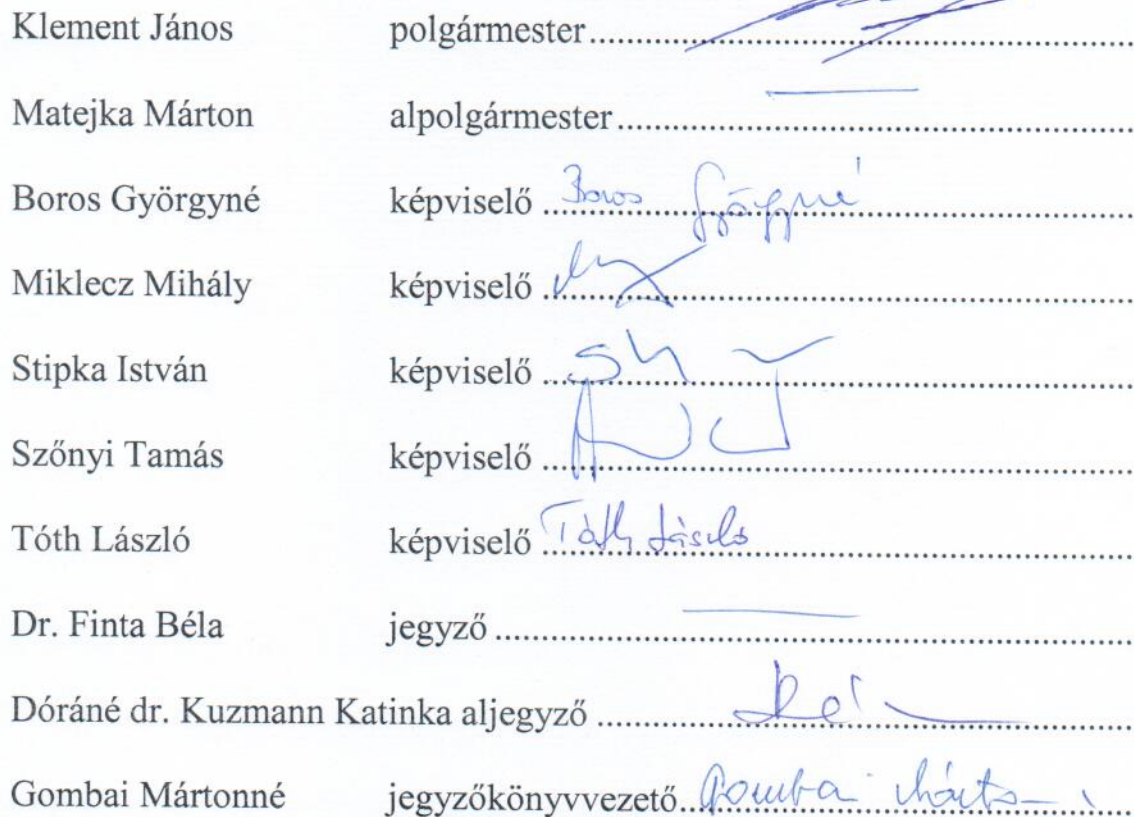 Klement János polgármester..........................................................
Matejka Márton alpolgármester......................................................
Boros Györgyné képviselő Boros Györgyné
Miklecz Mihály képviselő ..............................................................
Stipka István képviselő ..............................................................
Szőnyi Tamás képviselő ..............................................................
Tóth László képviselő Tóth László
Dr. Finta Béla jegyző ....................................................................
Dóráné dr. Kuzmann Katinka aljegyző ........................................................
Gombai Mártonné jegyzőkönyvvezető..Gombai